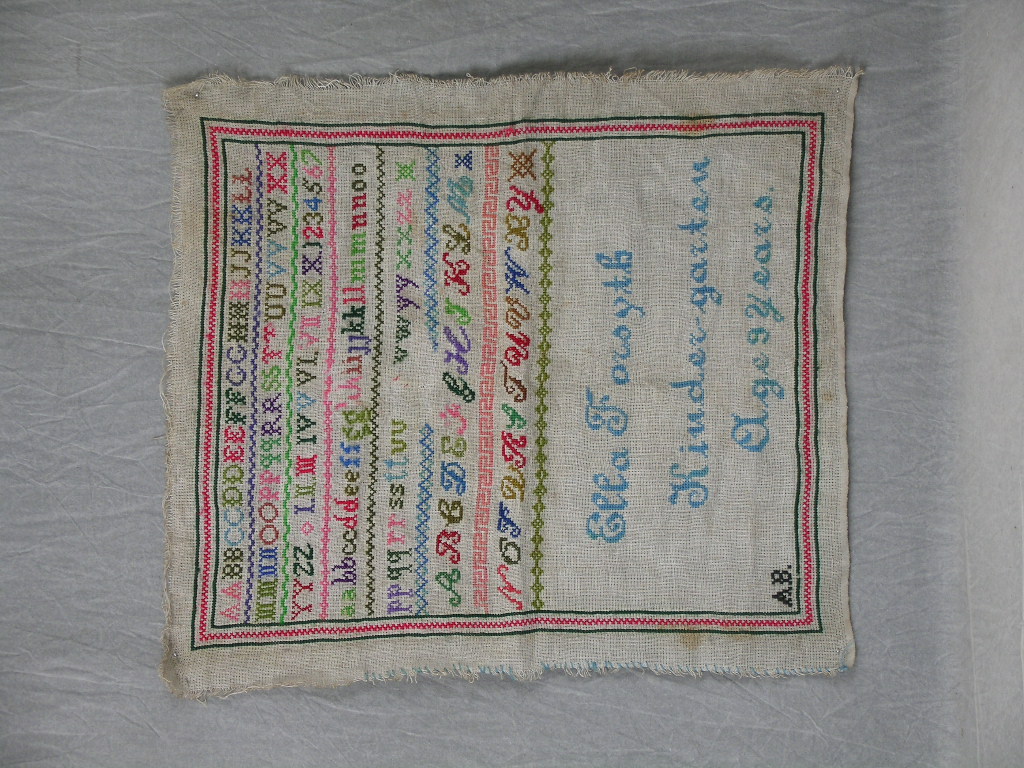 AABBCCDDEEFFGGHHIIJJKKLL
MMNNOOPPQQRRSSTTUUVVWWXX
YYZZ I II III IV V VI VII IX X 1234567
aabbccddeeffgghhiijjkkllmmnnoo
ppqqrrssttuuvvwwyyxxzz
ABCDEFGHIJKLM
NOPQRSTUVWXYZ
Ella Forsyth
Kinder-garten
Age 9 Years.
A.B.